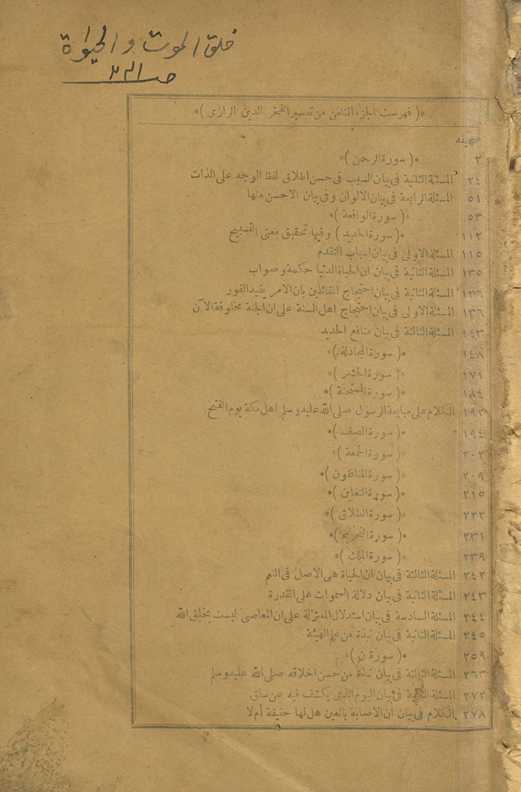 خلق الموت والحيوة
*( فهرست الجزء الثامن من تفسير الفخر الدين الرازى )*
صحيفه
٢ *( سورة الرحمن )*
٢٤ المسئلة الثانية فى بيان السبب فى حسن اطلاق لفظ الوجه على الذات
٥١ المسئلة الرابعة فى بيان الالوان وفى بيان الاحسن منها
٥٣ *( سورة الواقعة )*
١١٢ *( سورة الحديد ) وفيها تحقيق معنى التسبيح
١١٥ المسئلة الاولى فى بيان اسباب التقدم
١٣٥ المسئلة الثانية فى بيان ان الحياة الدنيا حكمة وصواب
١٣٦ المسئلة الثانية فى بيان احتجاج القائلين بان الامر يفيد الفور
١٣٦ المسئلة الاولى فى بيان احتجاج اهل السنة على ان الجنة مخلوقة الآن
١٤٣ المسئلة الثالثة فى بيان منافع الحديد
١٤٨ *( سورة المجادلة )*
١٧١ *( سورة الحشر )*
١٨٤ *( سورة الممتحنة )*
١٩٢ الكلام على مبايعة الرسول صلى الله عليه وسلم اهل مكة يوم الفتح
١٩٤ *( سورة الصف )*
٢٠٢ *( سورة الجمعة )*
٢٠٩ *( سورة المنافقون )*
٢١٥ *( سورة التغابن )*
٢٢٢ *( سورة الطلاق )*
٢٣١ *( سورة التحريم )*
٢٣٩ *( سورة الملك )*
٢٤٢ المسئلة الثالثة فى بيان ان الحياة هى الاصل فى النعم
٢٤٣ المسئلة الثانية فى بيان دلالة السموات على القدرة
٢٤٤ المسئلة السادسة فى بيان استدلال المعتزلة على ان المعاصى ليست بخلق الله
٢٤٥ المسئلة الثانية فى بيان نبذة من علم الهيئة
٢٥٩ *( سورة ن )*
٢٦٣ المسئلة الثالثة فى بيان نبذة من حسن اخلاقه صلى الله عليه وسلم
٢٧٢ المسئلة فى بيان اليوم الذى يكشف فيه عن ساق
٢٧٨ الكلام فى بيان ان الاصابة بالعين هل لها حقيقة أم لا